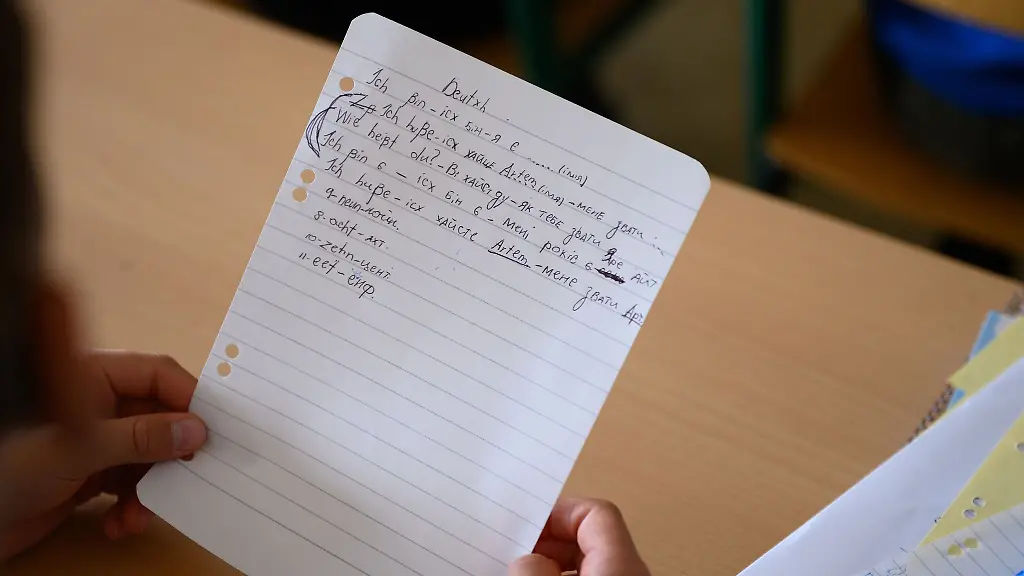 Deutsh.
Ich bin - іcх бін - я є ..... (імя)
Ich huße - іcх хайце Artem (імя) - мене звати ...
Wie heißt du? - Ві хайст ду - як тебе звати?
Ich bin 6 - іcх бін 6 - мені років 6
Ich huße - іcх хайсте Artem - мене звати
8 - acht - ахт.
10 - zehn - цент.
11 - eef - ейф.